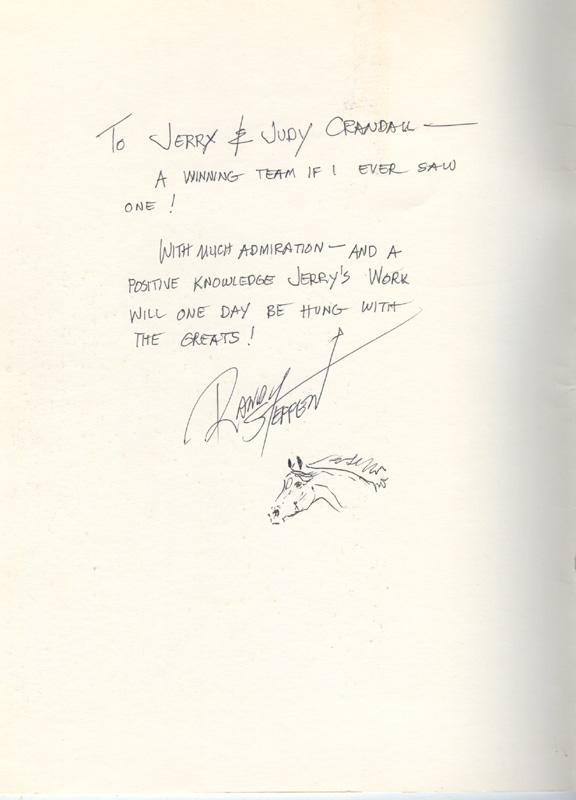 TO JERRY & JUDY CRANDALL —
A WINNING TEAM IF I EVER SAW
ONE!
WITH MUCH ADMIRATION — AND A
POSITIVE KNOWLEDGE JERRY'S WORK
WILL ONE DAY BE HUNG WITH
THE GREATS!
RANDY
STEFFEN